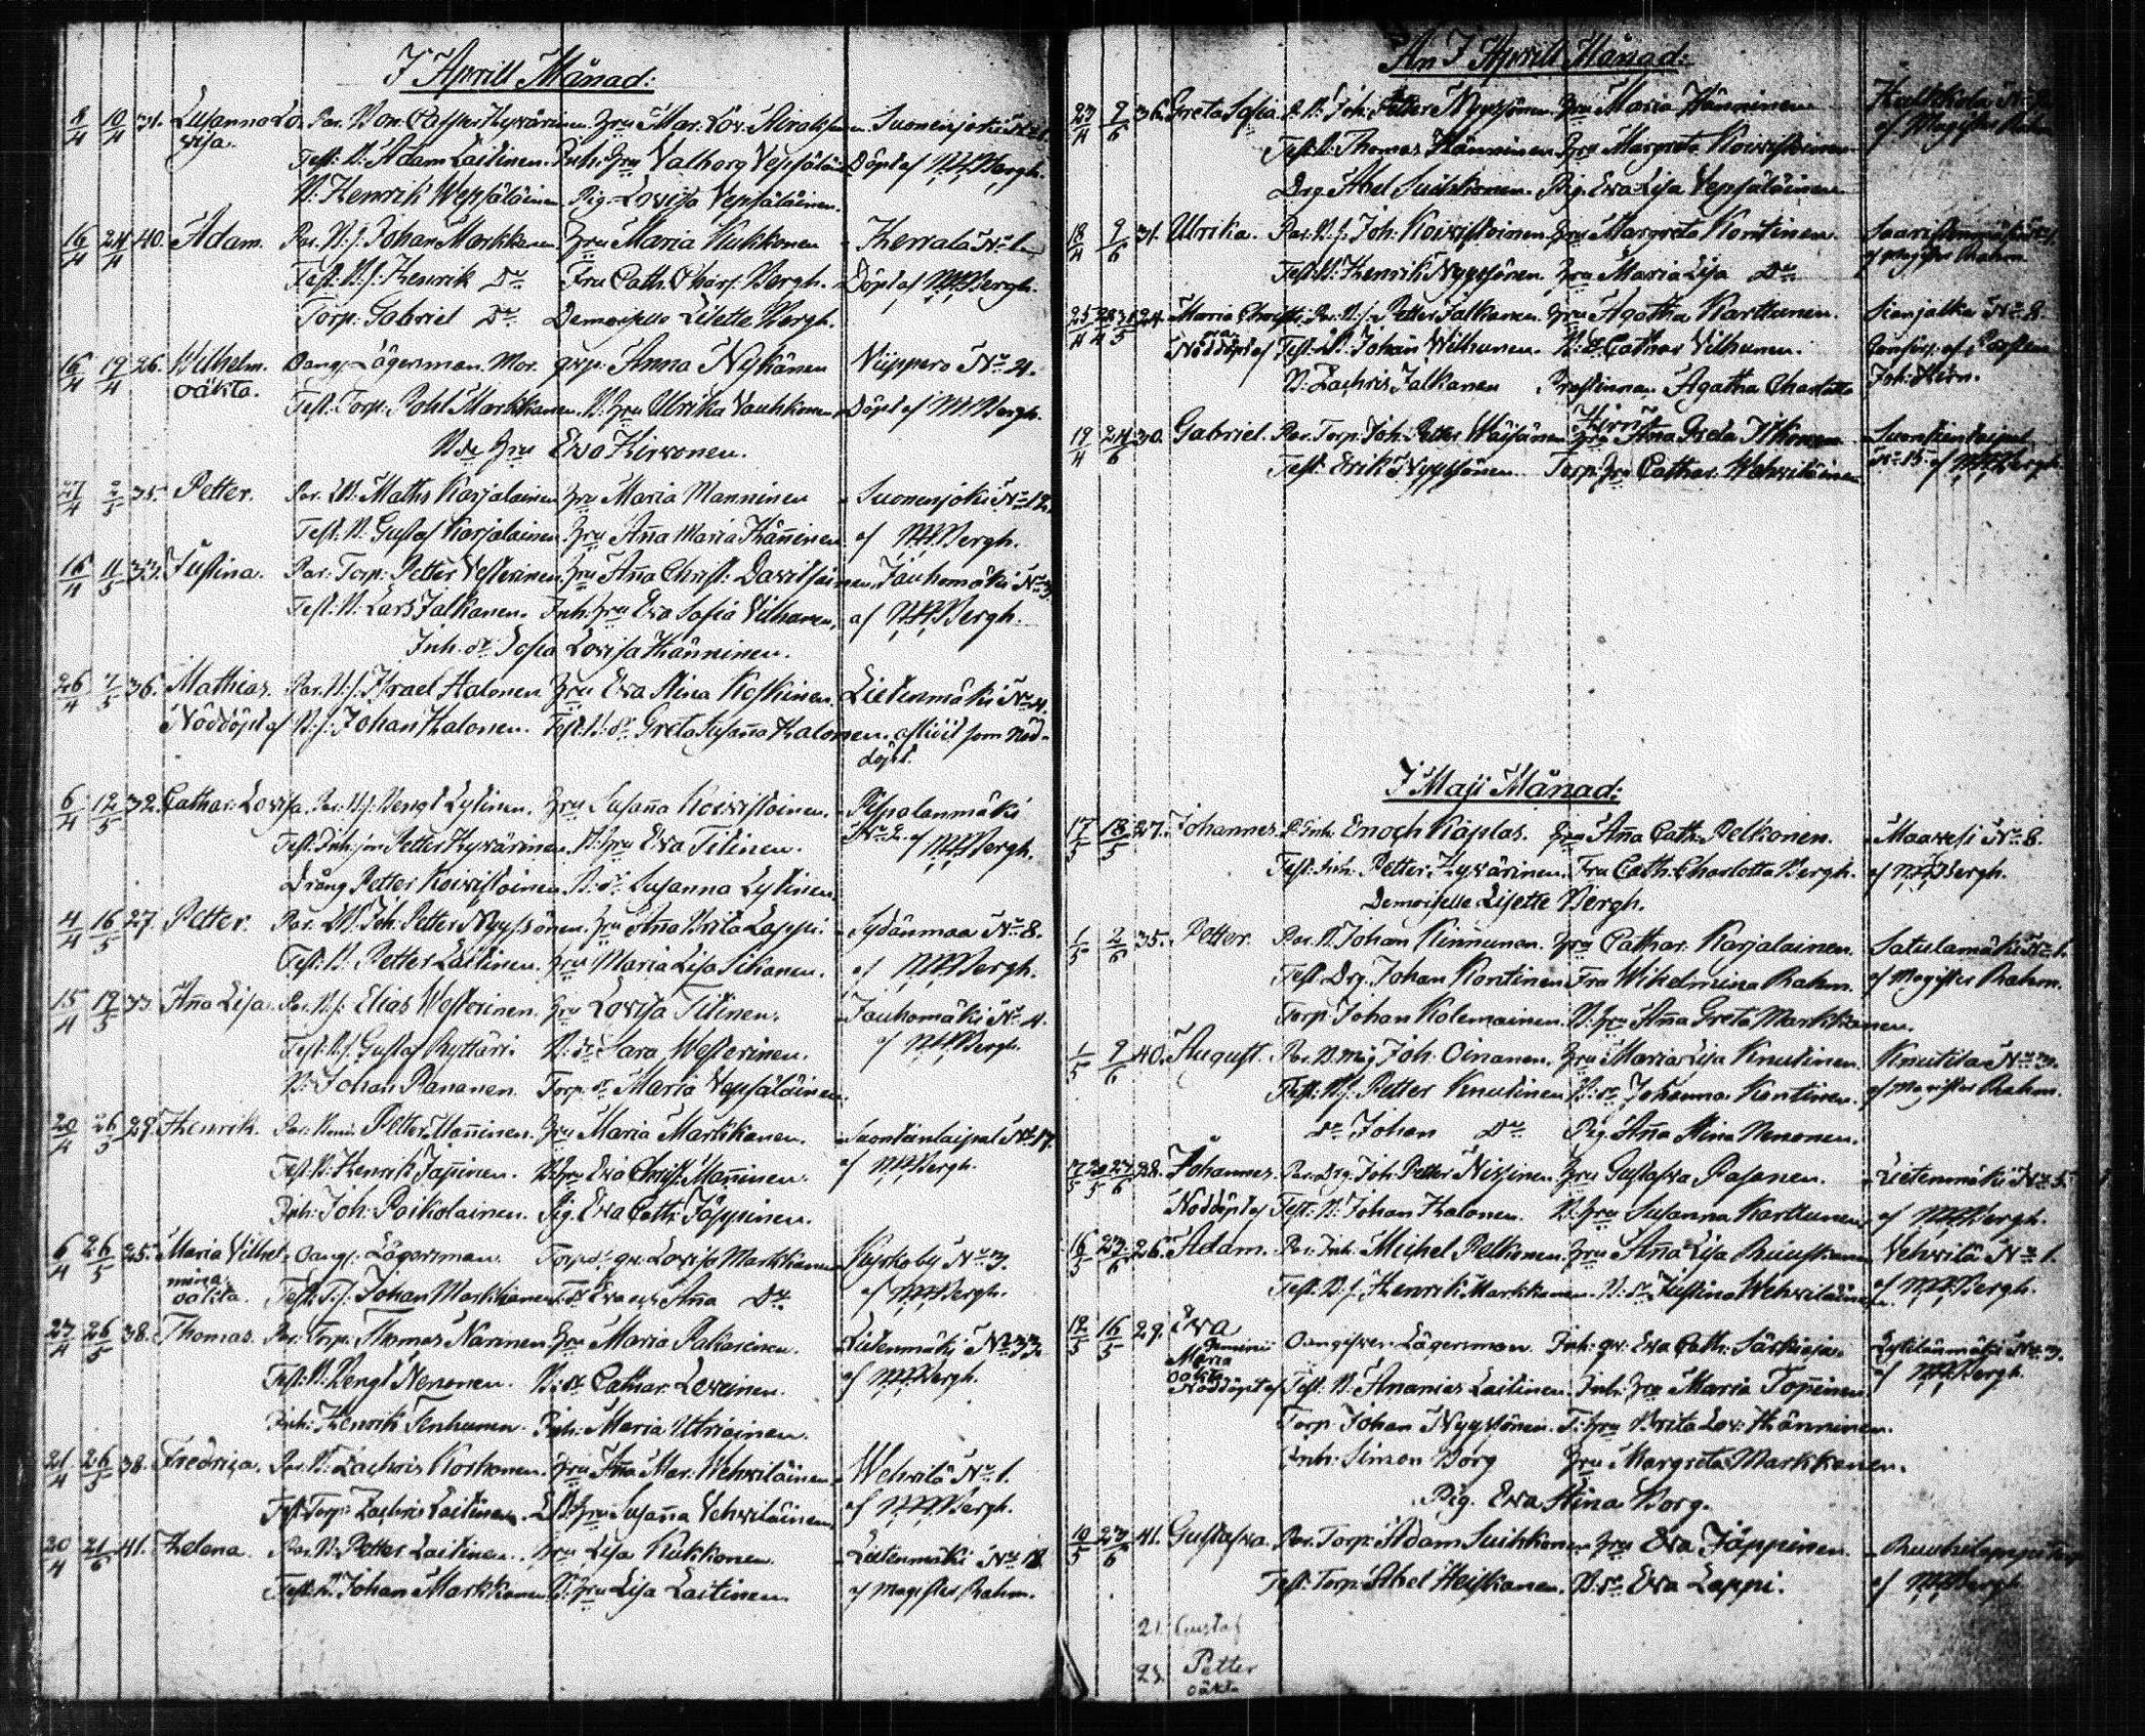 I Aprill Månad:
8/4 10/4 31. Susanna Lo- Par. Bon. Casper Hyvärinen. Hru Mar. Lov. Miralsinen. Suonenjoki No 1.
visa. Test: B: Adam Laitinen. Inh: Hru Valborg Vepsäläinen Döpt af M.H.Bergh.
B: Henrik Wepsäläinen. Pig. Lovisa Vepsäläinen.
16/4 24/4 40. Adam. Par. B. s. Johan Markkanen Hru Maria Kukkonen Kerrala No 1.
Test. B. s. Henrik Do Fru Cath. Charl. Bergh. Döpt af M.H.Bergh.
Torp. Gabriel Do Demoiselle Lisette Bergh.
16/4 19/4 26. Wilhelm. Oang. Lägersman. Mor. qvp. Anna Nykänen Viippero No 4.
oäkta. Test. Torp. Pohl Markkanen. B. Hru Ulrika Vauhkonen Döpt af M.H.Bergh.
B de Hru Eva Hirvonen.
27/4 2/5 35. Petter. Par. B. Maths Karjalainen Hru Maria Manninen Suonenjoki No 12.
Test. B. Gustaf Karjalainen Hru Aña Maria Häñinen af M.H.Bergh.
16/4 11/5 33. Justina. Par. Torp. Petter Vesterinen. Hru Aña Christ. Davidsainen. Jauhomäki No 3.
Test. B. Lars Jalkanen. Inh. Hru Eva Sofia Vilhunen. af M.H.Bergh.
Inh. dr Sofia Lovisa Hänninen.
26/4 7/5 36. Mathias. Par. B. s. Israel Halonen Hru Eva Stina Koskinen. Lietenmäki No 4.
Nöddöpt af B. s. Johan Halonen. Test. B. dr Greta Susaña Halonen. aflidit som nöd-
döpt.
6/4 12/5 32. Cathar. Lovisa. Par. B. s. Bengt Lytinen. Hru Susaña Koivistoinen. Piispalanmäki
Test. Inh. Petter Hyvärinen. B. Hru Eva Titinen. No 2. af M.H.Bergh.
Dräng Petter Koivistoinen B. dr Susanna Lytinen.
4/4 16/5 27. Petter. Par. B. Joh. Petter Nyyssönen. Hru Aña Brita Lappi. Sydänmaa No 8.
Test. B. Petter Laitinen. Hru Maria Lisa Sikanen. af M.H.Bergh.
15/4 19/5 33. Aña Lisa. Par. B. s. Elias Westerinen. Hru Lovisa Titinen. Jauhomäki No 4.
Test. B. s. Gustaf Ryttäri. B. dr Sara Westerinen. af M.H.Bergh.
B. Johan Pananen. Torp. dr Maria Vepsäläinen.
20/4 26/5 29. Henrik. Par. Petter Mañinen. Hru Maria Markkanen. Suontientaipal No 17.
Test. B. Henrik Jäppinen. B. Hru Eva Christ. Mañinen. af M.H.Bergh.
Inh. Joh. Poikolainen. Pig. Eva Cath. Jäppinen.
6/4 26/5 25. Maria Vilhel- Oang. Lägersman. Torp. dr qv. Lovisa Markkanen Kyrkoby No 3.
mina. oäkta. Test. T. s. Johan Markkanen. T. dr Eva och Aña Do af M.H.Bergh.
27/4 26/5 38. Thomas. Par. Torp. Thomas Narinen Hru Maria Pakarinen. Lietenmäki No 33.
Test. B. Bengt Nenonen. B. dr Cathar. Leveinen. af M.H.Bergh.
Inh. Henrik Tenhunen. Inh. Maria Utriainen.
21/4 26/5 38. Fredrica. Par. B. Zachris Korhonen. Hru Aña Mar. Wehviläinen. Wehvilä No 1.
Test. Torp. Zachris Laitinen. B. Hru Susaña Vehviläinen. af M.H.Bergh.
20/4 21/6 41. Helena. Par. B. Petter Laitinen. Hru Lisa Kukkonen. Lietenmäki No 18.
Test. B. Johan Markkanen B. Hru Lisa Laitinen. af Magister Rahm.
Än I Aprill Månad:
27/4 9/6 36. Greta Sofia. P. B. Joh. Petter Nyyssönen. Hru Maria Hänninen. Hulkkola No
Test. B. Thomas Hänninen. Hru Margreta Koivistoinen. af Magister Rahm
Drg. Abel Suihkonen. Pig. Eva Lisa Vepsäläinen
18/4 9/6 31. Ulrika. Par. B. s. Joh. Koivistoinen. Hru Margreta Kontinen. Saaristenmäki No
Test. B. Henrik Nyyssönen. Hru Maria Lisa Do af Magister Rahm.
25/4 28/4 31/5 24. Maria Christi- Par. B. s. Petter Jalkanen. Hru Agatha Karttunen. Sianjalka No 8.
na Nöddöpt af Test. B. Johan Wilhunen. Cathar. Vilhunen. Confirm. af Pastorn
B. Zachris Jalkanen Prostinnan Agatha Charlotta Joh. Hirn.
Hirn
19/4 24/6 30. Gabriel. Par. Torp. Joh. Petter Wäisänen Hru Aña Greta Ikonen Suontientaipal
Test. Erik Nyyssönen. Torp. Hru Cathar. Wehviläinen No 15. af M.H.Bergh
I Maji Månad:
17/5 18/5 27. Johannes. P. Inh. Enoch Käplas. Hru Aña Cath. Pelkonen. Maavesi No 8.
Test. Inh. Petter Hyvärinen. Fru Cath. Charlotta Bergh. af M.H.Bergh.
Demoiselle Lisette Bergh.
1/5 2/6 35. Petter. Par. B. Johan Kinnunen. Hru Cathar. Karjalainen. Satulamäki No 1.
Test. Drg. Johan Kontinen. Fru Wilhelmina Rahm. af Magister Rahm.
Torp. Johan Kolemainen. B. Hru Aña Greta Markkanen.
1/5 9/6 40. August. Par. B. måg Joh. Oinonen. Hru Maria Lisa Knutinen. Knutila No 3.
Test. B. s. Petter Knutinen B. dr Johanna Kontinen. af Magister Rahm.
Do Johan Do Pig. Aña Stina Nenonen.
7/5 20/5 27/6 28. Johannes. Par. Drg. Joh. Petter Nissinen. Hru Gustafva Pasanen. Lietenmäki No 5.
Nöddöpt af Test. B. Johan Halonen. B. Hru Susanna Karttunen. af M.H.Bergh.
16/5 23/6 26. Adam. Par. Inh. Michel Pelkonen. Hru Aña Lisa Ruuskanen Vehvilä No 1.
Test. B. s. Henrik Markkanen. B. dr Justina Wehviläinen. af M.H.Bergh.
12/5 16/5 29. Eva
Gemini Oangifven Lägersman. Inh. qv. Eva Cath. Särkiejä. Lylilänmäki No 3.
Maria oäkta af M.H.Bergh.
Nöddöpt af Test. B. Ananias Laitinen. Inh. Hru Maria Toppinen.
Torp. Johan Nyyssönen. T. Hru Brita Lov. Hänninen.
Inh. Simon Borg Hru Margreta Markkanen.
Pig. Eva Stina Borg.
10/5 27/6 41. Gustafva. Par. Torp. Adam Suihkonen Hru Eva Jäppinen.
Test. Torp. Abel Heiskanen. B. dr Eva Lappi. af M.H.Bergh
21. Gustaf
23. Petter
oäkta